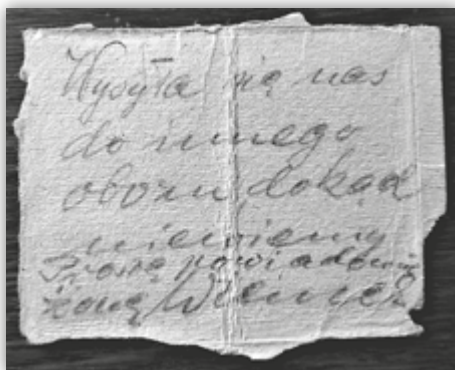 Wysyła się nas
do innego
obozu, dokąd
niewiemy
Proszę powiadomić
żonę